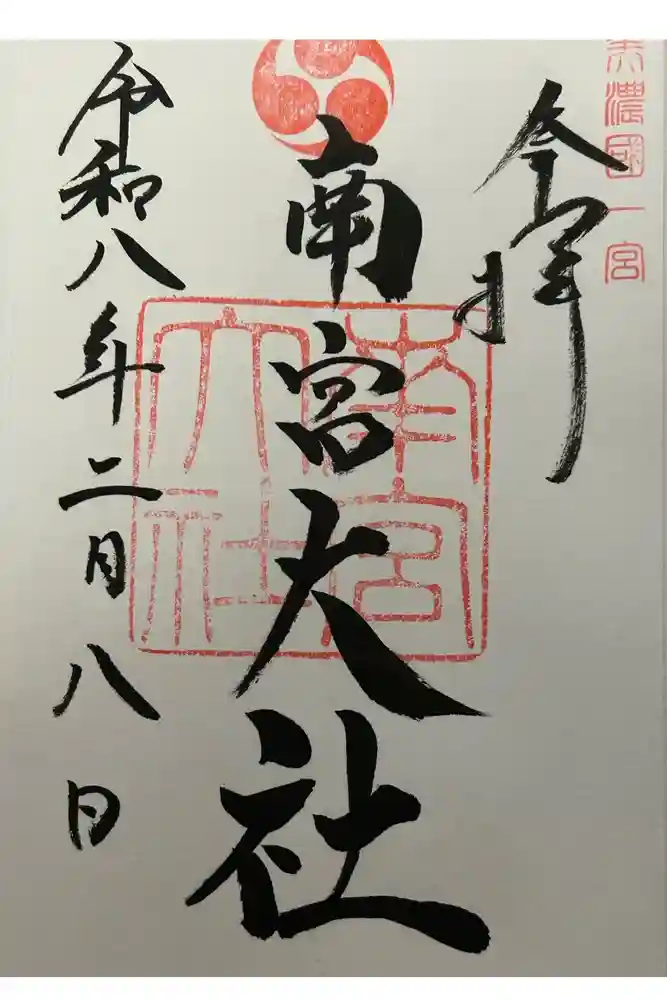 美濃國一宮
奉拝
南宮大社
南宮大社
令和八年二月八日